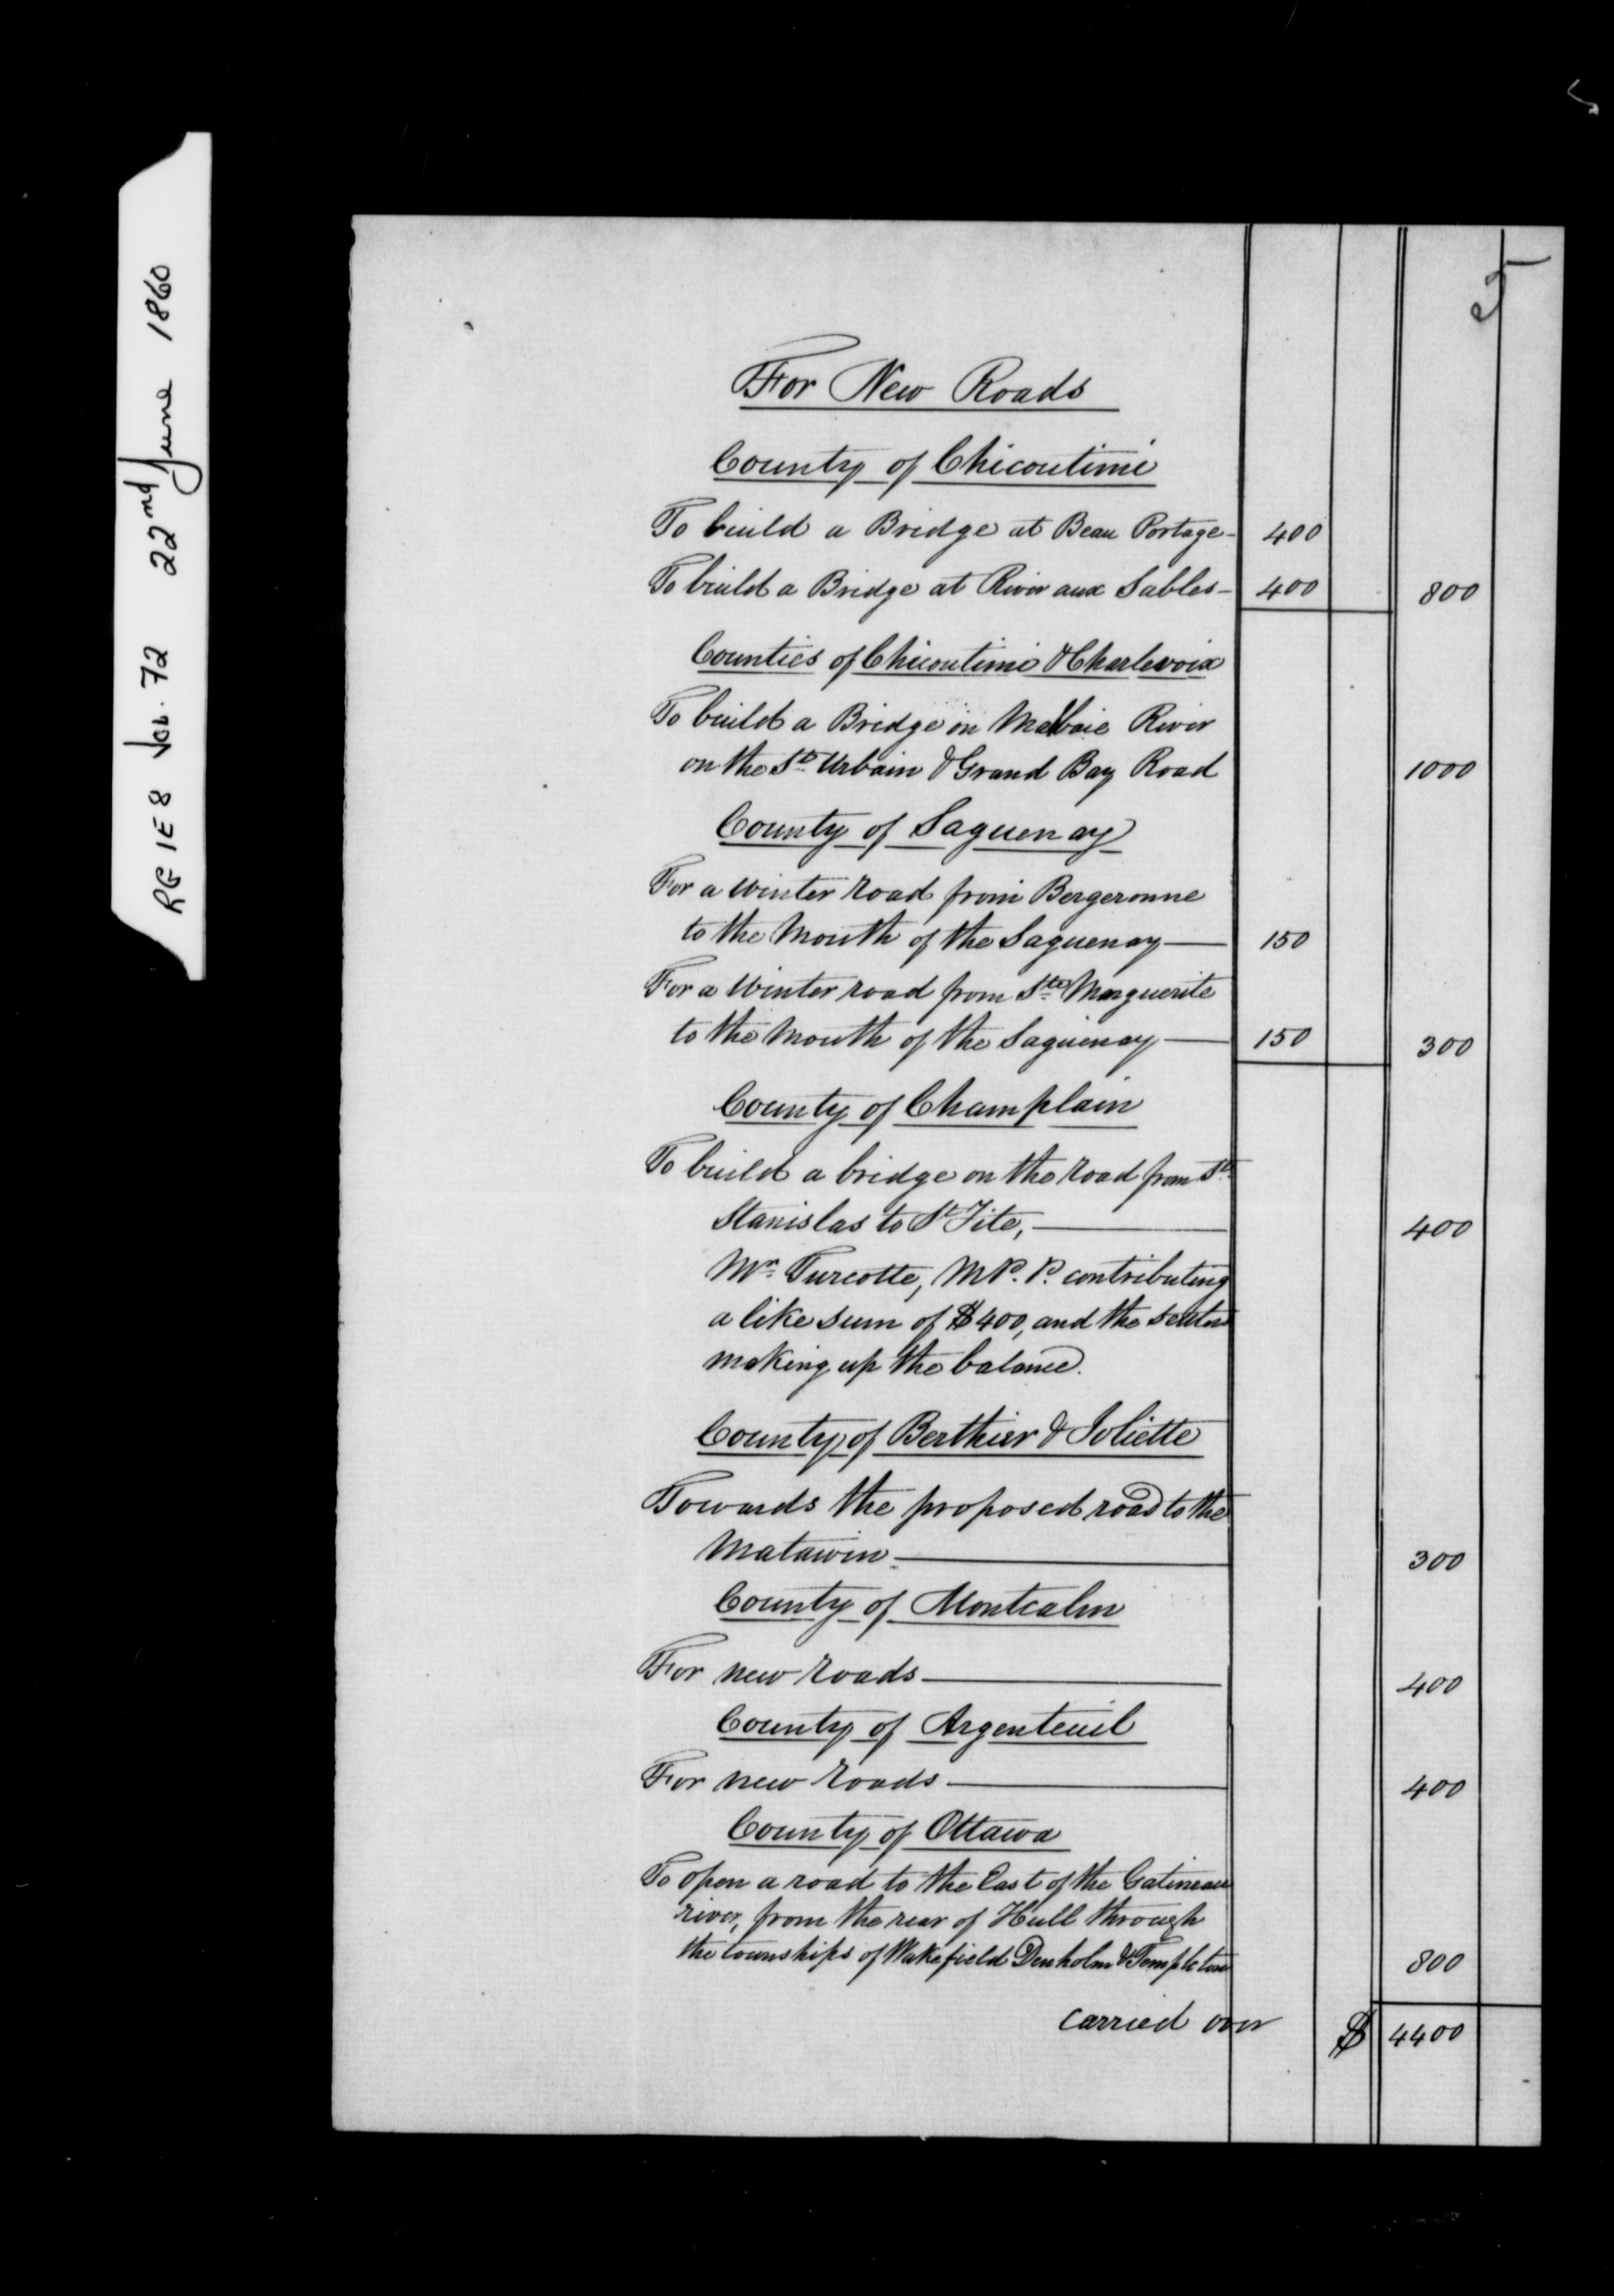 RG 1 E 8 Vol. 72 22nd June 1860
5
For New Roads
County of Chicoutimi
To build a Bridge at Beau Portage - 400
To build a Bridge at River aux Sables - 400 800
Counties of Chicoutimi & Charlevoix
To build a Bridge on Malbaie River
on the St Urbain & Grand Bay Road 1000
County of Saguenay
For a winter road from Bergeronne
to the Mouth of the Saguenay — 150
For a winter road from Ste Marguerite
to the Mouth of the Saguenay — 150 300
County of Champlain
To build a bridge on the road from St
Stanislas to St Tite, — 400
Mr. Turcotte, M.P.P. contributing
a like sum of $400, and the
making up the balance.
County of Berthier & Joliette
Towards the proposed road to the
Matawin — 300
County of Montcalm
For new roads — 400
County of Argenteuil
For new roads — 400
County of Ottawa
To open a road to the East of the Gatineau
river, from the rear of Hull through
the townships of Wakefield Denholm & Templeton 800
carried over $ 4400